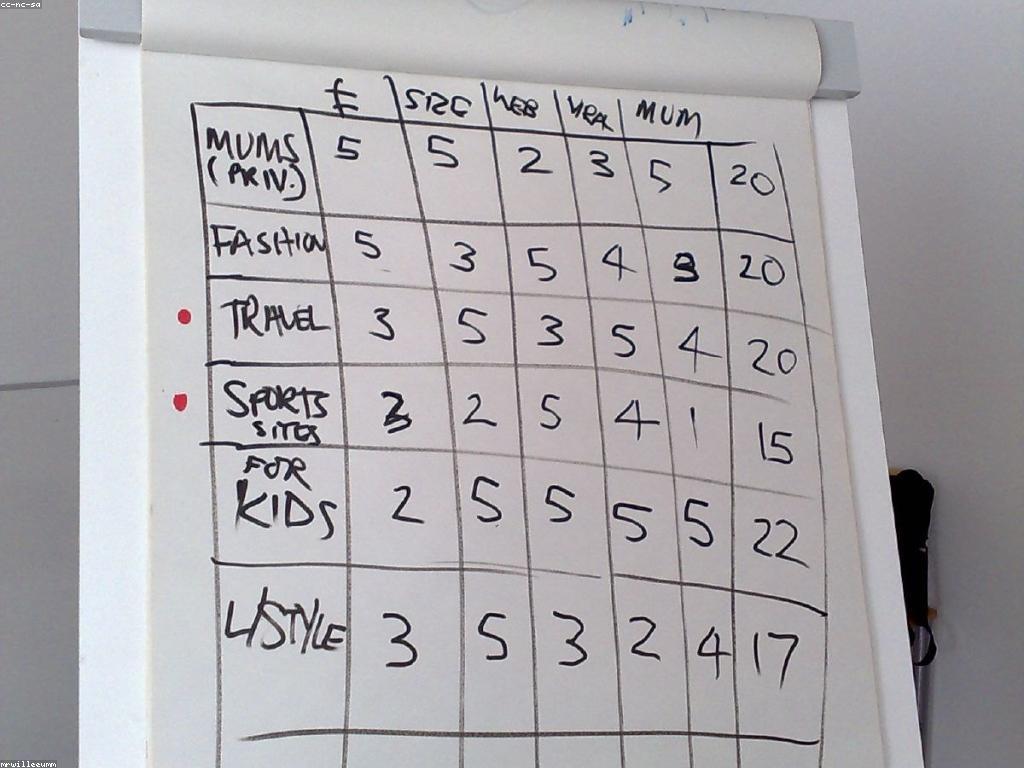 cc-nc-sa
£ SIZE WEB MUM
MUMS 5 5 2 3 5 20
(PRIV.)
FASHION 5 3 5 4 3 20
TRAVEL 3 5 3 5 4 20
SPORTS 3 2 5 4 1 15
SITES
FOR
KIDS 2 5 5 5 5 22
L/STYLE 3 5 3 2 4 17
mrwilleeumm